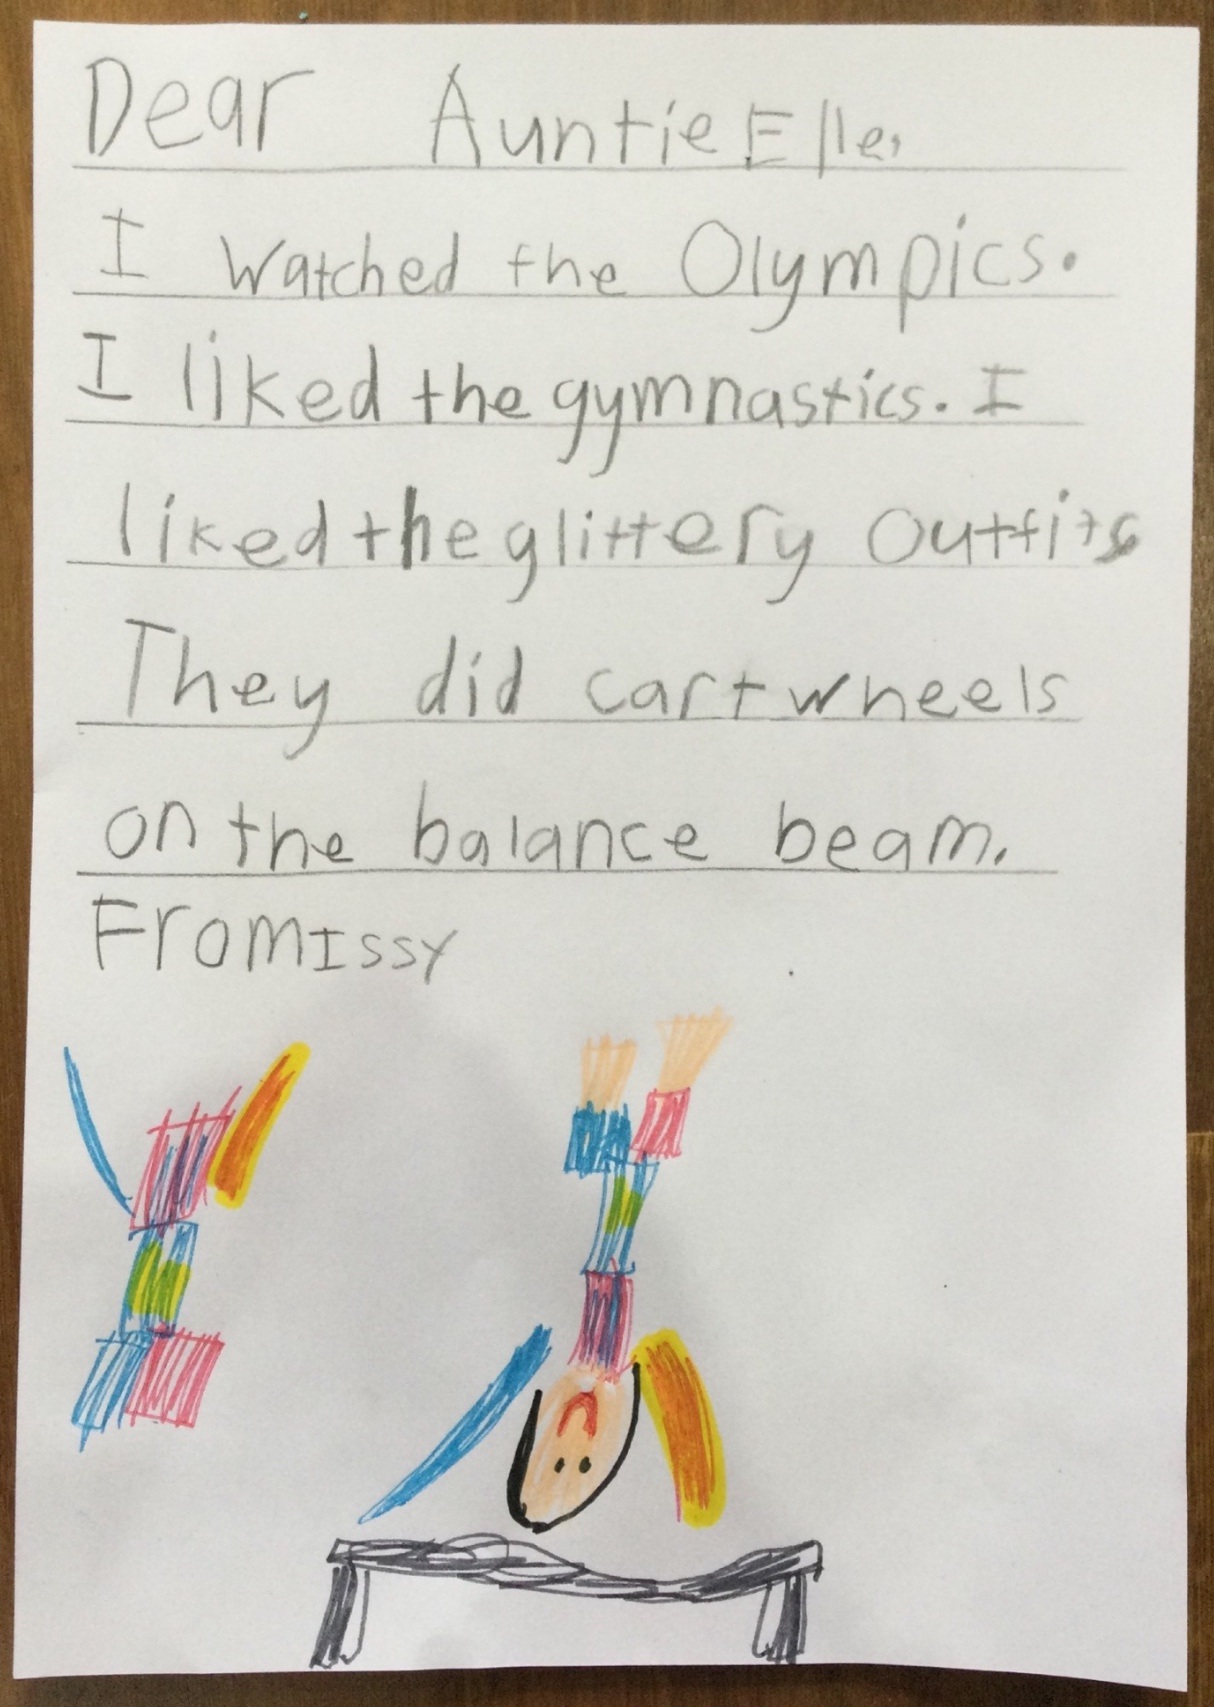 Dear Auntie Elle,
I watched the Olympics.
I liked the gymnastics. I
liked the glittery outfits
They did cartwheels
on the balance beam.
From Issy